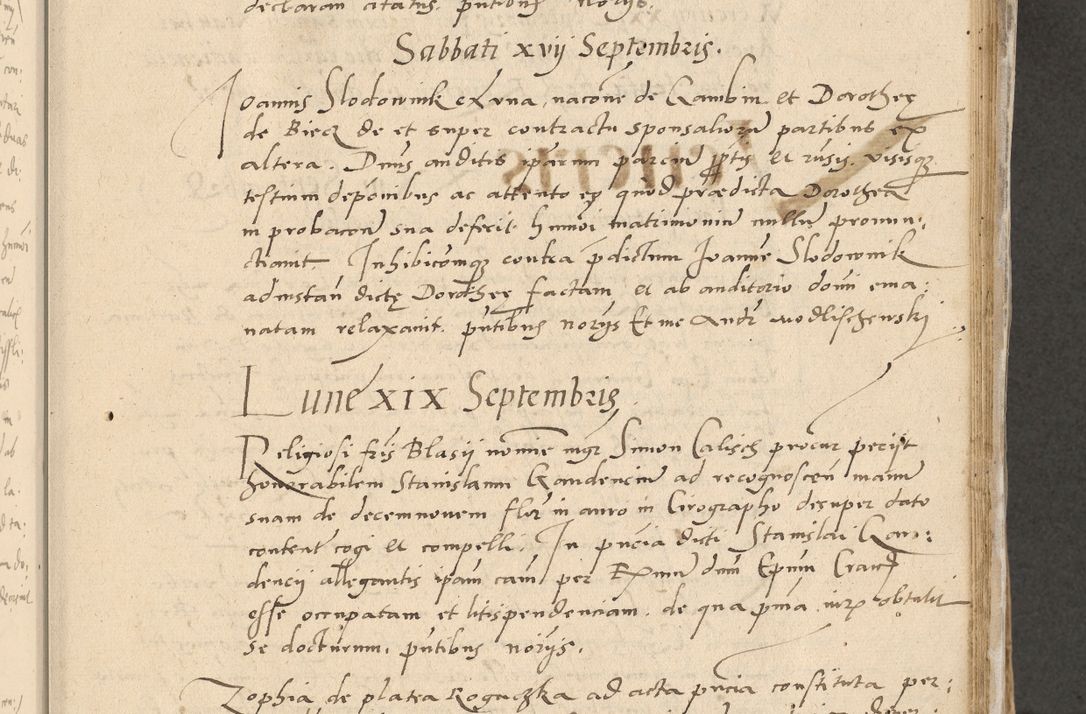 declaram citatus. pntibus norijs.
Sabbati xvij Septembris.
Joannis Slodownik ex vna, nacone de Gambin et Dorotheę
de Biecz de et super contractu sponsaliorum partibus ex
altera. Dnus auditis iparum parcium pptis et rusis. visisq
testium deponibus ac attento eo quod prædicta Dorothea
in probacone sua defecit. humoi matrimonium nullum pronun:
ctiauit. Inhibicionemq contra pdictum Joannem Slodownik
ad instan dictę Dorotheę factam et ab auditorio domi ema:
natam relaxauit. pntibus norijs Et me Andr wodlischewski
Lune xix Septembris
Religiosi fris Blasij nomine mgr Simon Calisch procur pecijt
honorabilem Stanislaum Gaudencium ad recognoscen manum
suam de decemnouem flor in auro in Cirographo desuper dato
content cogi et compelli. In pncia dicti Stanislai Gau:
dencij allegantis ipam cam per Rmum dnm Epum Crac
esse occupatam et litispendenciam. de qua pma iurx obtulit
se docturum. pntibus norijs.
Zophia de platea Rogaczka ad acta pncia constituta per: